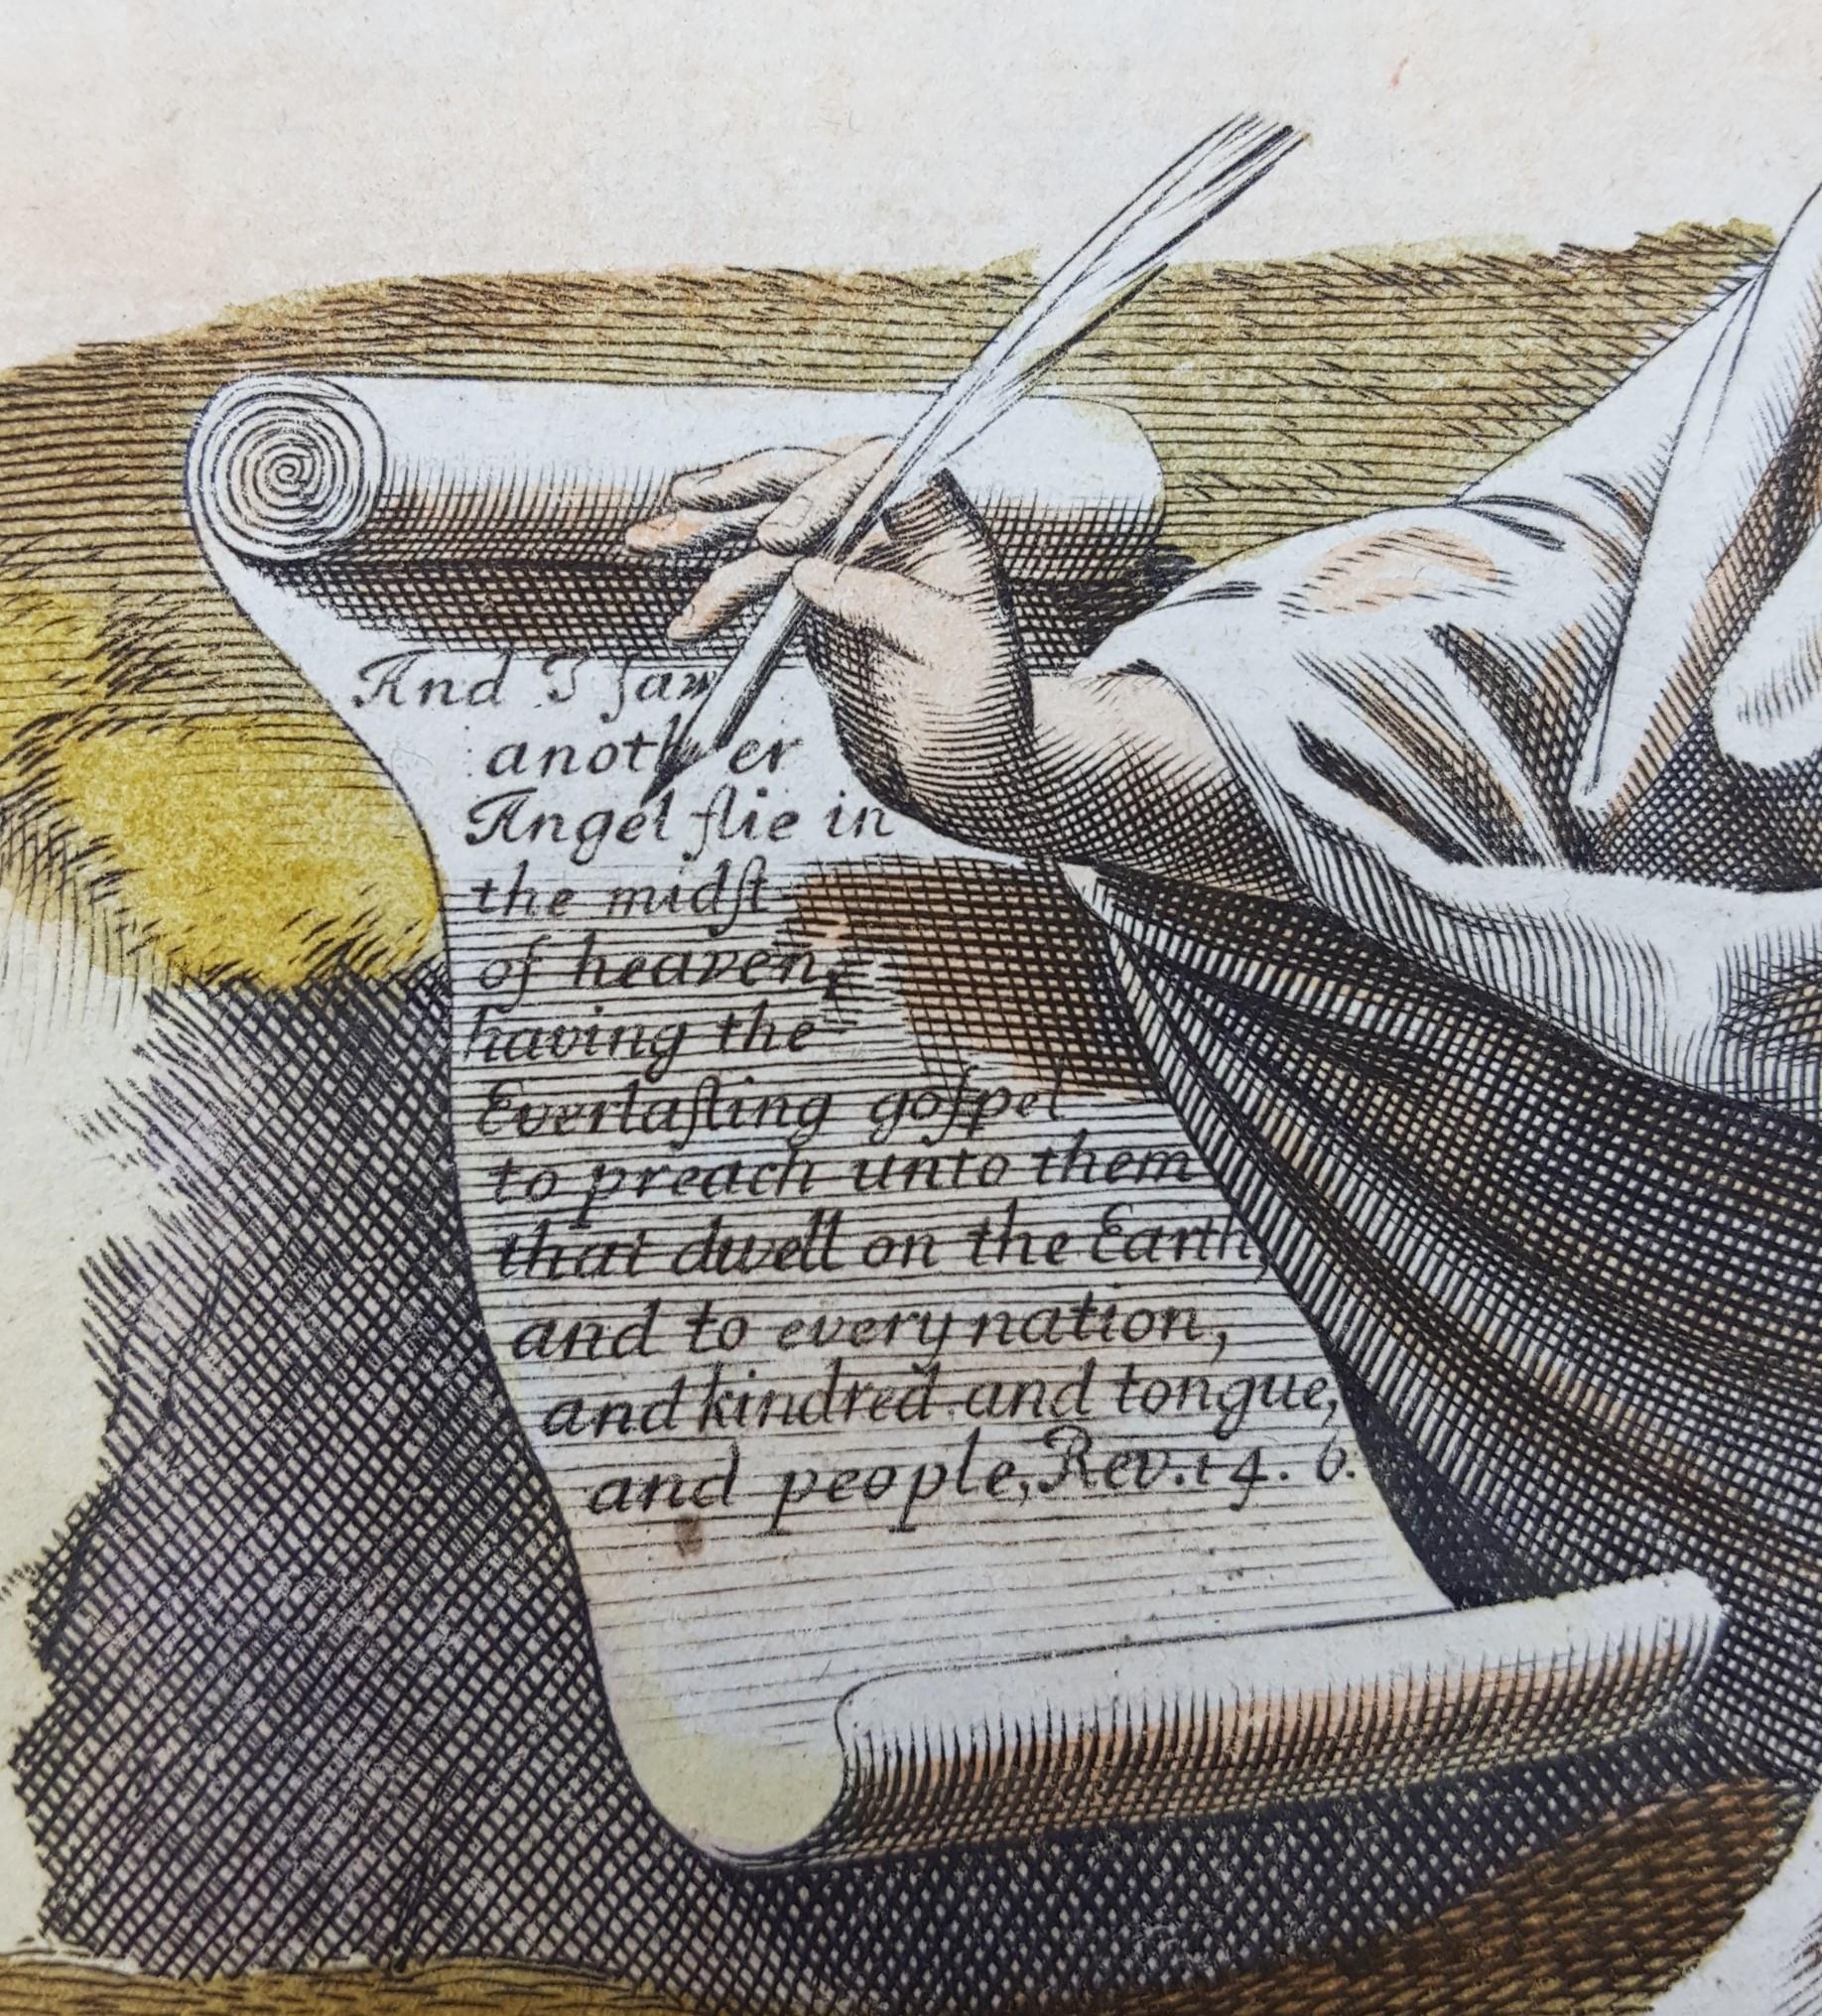 And I ſaw
another
Angel flie in
the midſt
of heaven,
having the
Everlaſting goſpel
to preach unto them
that dwell on the Earth,
and to every nation,
and kindred and tongue,
and people, Rev. 14. 6.